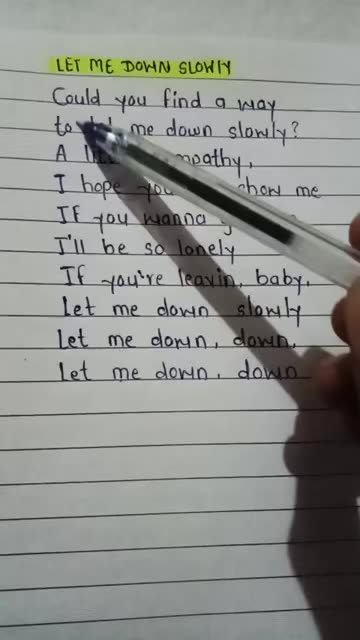 LET ME DOWN SLOWLY
Could you find a way
to let me down slowly?
A
I hope you show me
If you wanna
I'll be so lonely
If you're leavin, baby,
Let me down slowly
Let me down, down,
Let me down, down